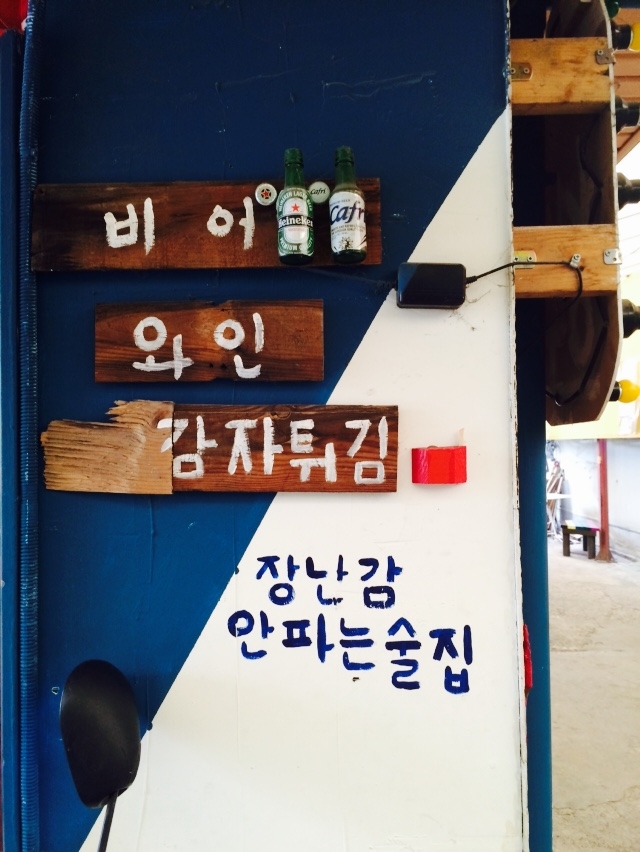 비어
Heineken
Cafri
Cafri
와인
감자튀김
장난감
안파는술집